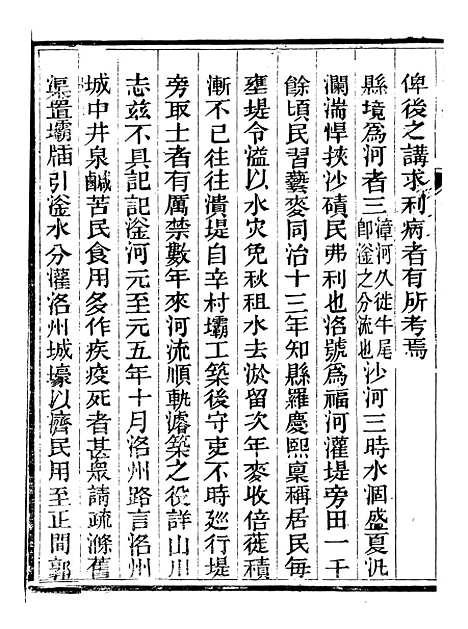 俾後之講求利病者有所考焉
縣境爲河者三漳河久徙牛尾卽滏之分流也沙河三時水涸盛夏汎
瀾湍悍挾沙磧民弗利也洺號爲福河灌堤旁田一千
餘頃民習藝麥同治十三年知縣羅慶熙稟稱居民每
壅堤令溢以水灾免秋租水去淤留次年麥收倍蓰積
漸不已往往潰堤自辛村壩工築後守吏不時巡行堤
旁取土者有厲禁數年來河流順軌濬築之役詳山川
志茲不具記記滏河元至元五年十月洺州路言洺州
城中井泉鹹苦民食用多作疾疫死者甚眾請疏滌舊
渠置壩牐引滏水分灌洺州城壕以濟民用至正間郭